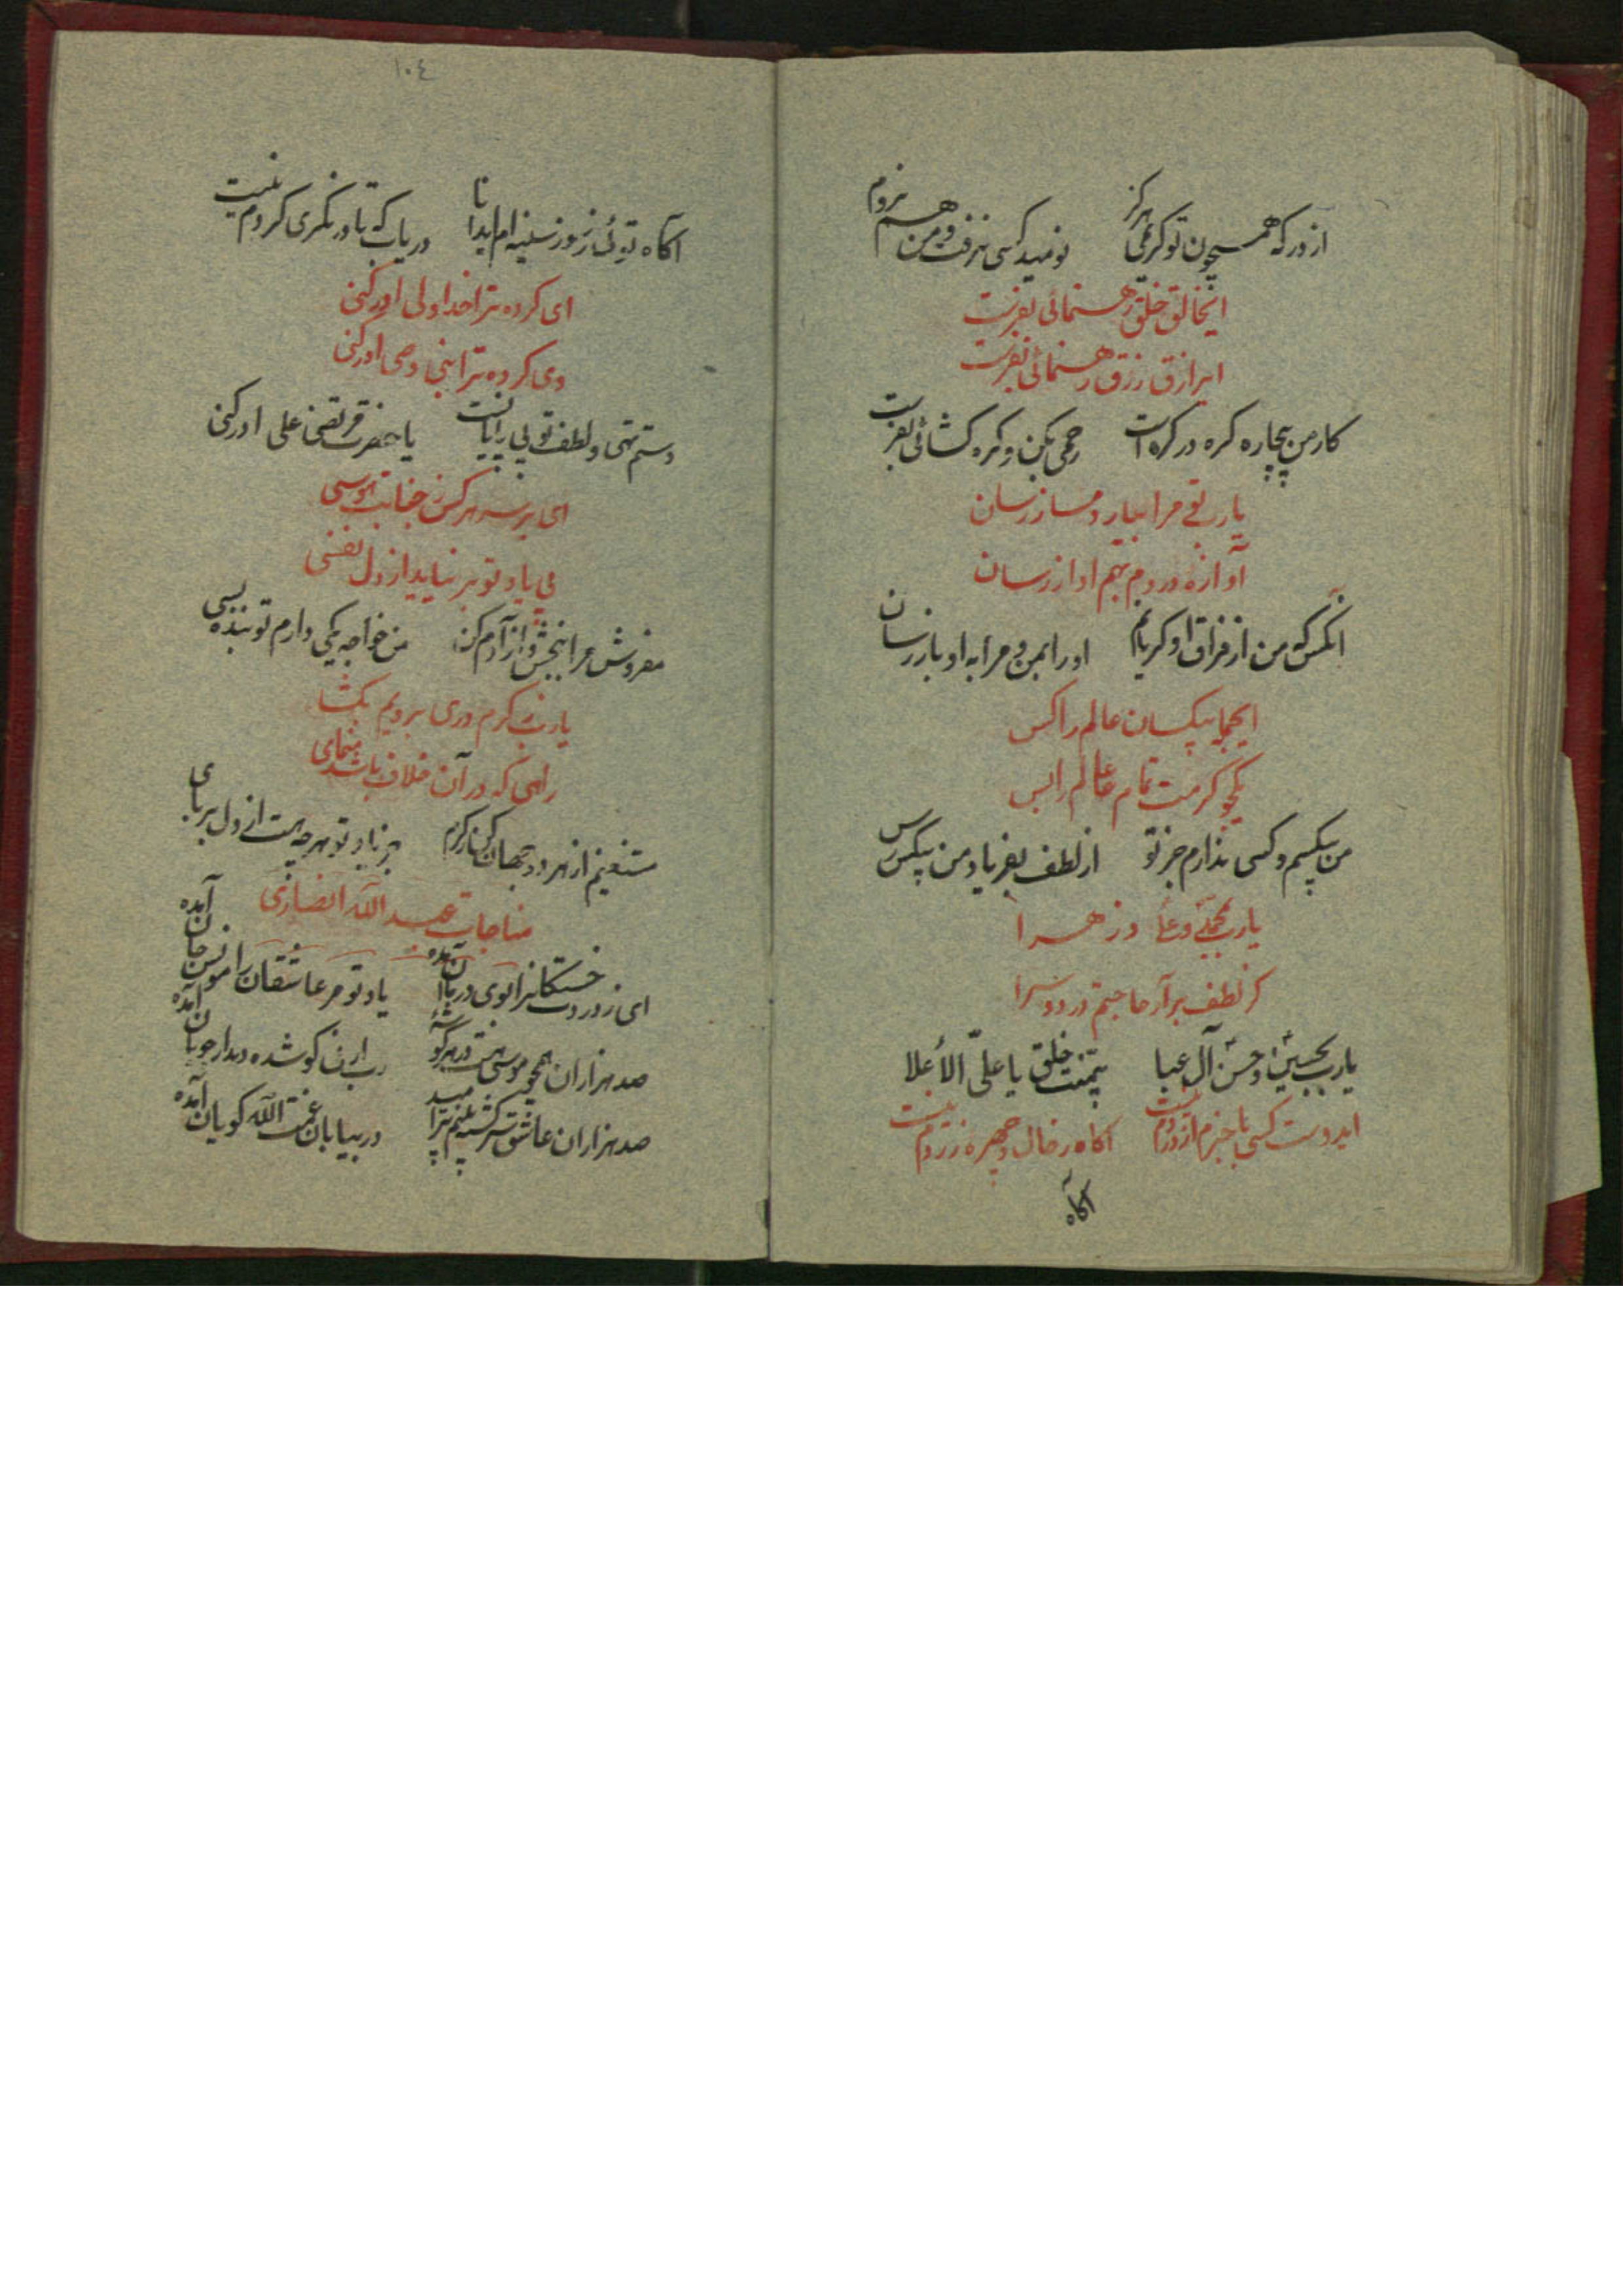 از درکه همچون تو کریمی هرکز نومید کسی نرفت و من هم نروم
ایخالق خلق رهنمائی بفرست
ایرازق رزق رهنمائی بفرست
کار من بیچاره کره در کره است رحمی بکن و کره کشائی بفرست
یارب تو مرا بیار دمساز رسان
آوازه دردم بهم آواز رسان
آنکس که من از فراق او کریانم او را بمن و مرا به او باز رسان
ایجمله بیکسان عالم را کس
یکجو کرمت تمام عالم را بس
من بیکسم و کسی ندارم جز تو از لطف بفریاد من بیکس رس
یارب بمحمد و علی و زهرا
کز لطف برآر حاجتم در دو سرا
یارب بحسین و حسن آل عبا بیمنت خلق یا علی الاعلا
ایدوست کسی باخبر از دردم نیست آکاه ز حال و چهره زردم نیست
آکاه
١٠٤
آکاه توئی ز سوز سینه ام ایدانا دریاب که تا درنکری کردم نیست
ای کرده ترا خدا ولی ادرکنی
وی کرده ترا نبی وصی ادرکنی
دستم تهی و لطف تو بی پایانست یا حضرت مرتضی علی ادرکنی
ای بر سر هر کس ز جنابت هوسی
بی یاد تو بر نیاید از دل نفسی
مفروش مرا ببخش و آزادم کن من خواجه یکی دارم تو بنده بسی
یارب ز کرم دری برویم بکشا
راهی که در آن خلاف باشد منمای
مستغنیم از هر دو جهان کن ز کرم جز یاد تو هرچه هست از دل بربای
مناجات عبدالله انصاری
ای ز دردت خستکانرا بوی درمان آمده یاد تو مر عاشقان را مونس جان آمده
صد هزاران همچو موسی هست در هر کوشه رب ارنی کو شده دیدار جویان آمده
صد هزاران عاشق سرکشته بینم پر امید در بیابان غمت الله کویان آمده